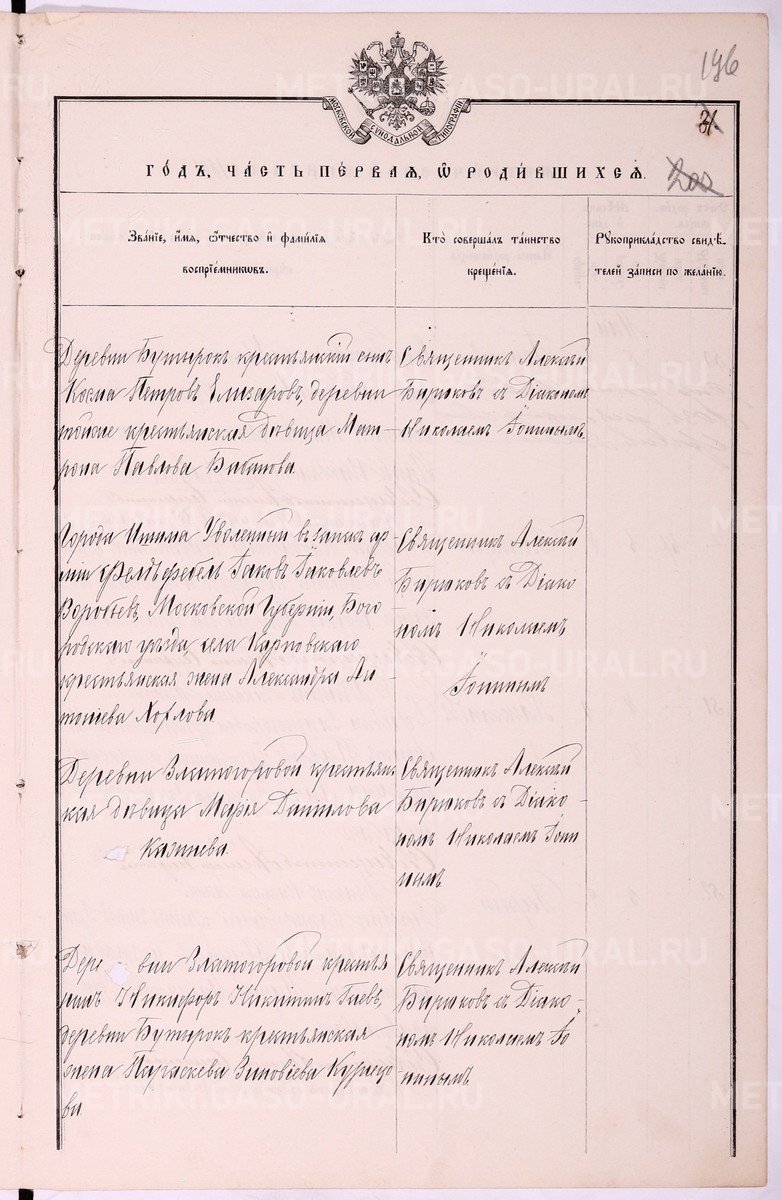 196
31
МОСКОВСКОЙ СѴНОДАЛЬНОЙ ТИПОГРАФІИ
200
ГО́ДЪ, ЧА́СТЬ ПЕ́РВАЯ, Ѿ РОДИ́ВШИХСѦ.
Зва́ніе, и҆́мѧ, ѻ҆́тчество и҆ фами́лїѧ
воспрїе́мникѡвъ.
Кто̀ соверша́лъ та́инство
креще́нїѧ.
Рꙋкоприкла́дство свидѣ́-
телей за́писи по жела́нїю.
Деревни Бутырокъ крестьянскій сынъ
Косма Петровъ Елизаровъ, деревни
тойже крестьянская дѣвица Мат-
рона Павлова Бабанова
Священникъ Алексѣй
Бирюковъ съ Діакономъ
Николаемъ
Города Ишима Уволенный въ запасъ ар-
міи Фельдфебель Іаковъ Іаковлевъ
Воробьевъ, Московской Губерніи, Бого
родскаго уѣзда, села Карповскаго
крестьянская жена Александра Ан
тоніева
Священникъ Алексѣй
Бирюковъ съ Діако
номъ Николаемъ
Деревни Златогоровой крестьян
ская дѣвица Марія Данилова
Казанцева
Священникъ Алексѣй
Бирюковъ съ Діако-
номъ Николаемъ
Деревни Златогоровой крестья
нинъ Никифоръ Никитинъ Гаевъ,
деревни Бутырокъ крестьянская
жена Параскева Зиновіева Кузнецо
ва
Священникъ Алексѣй
Бирюковъ съ Діако-
номъ Николаемъ